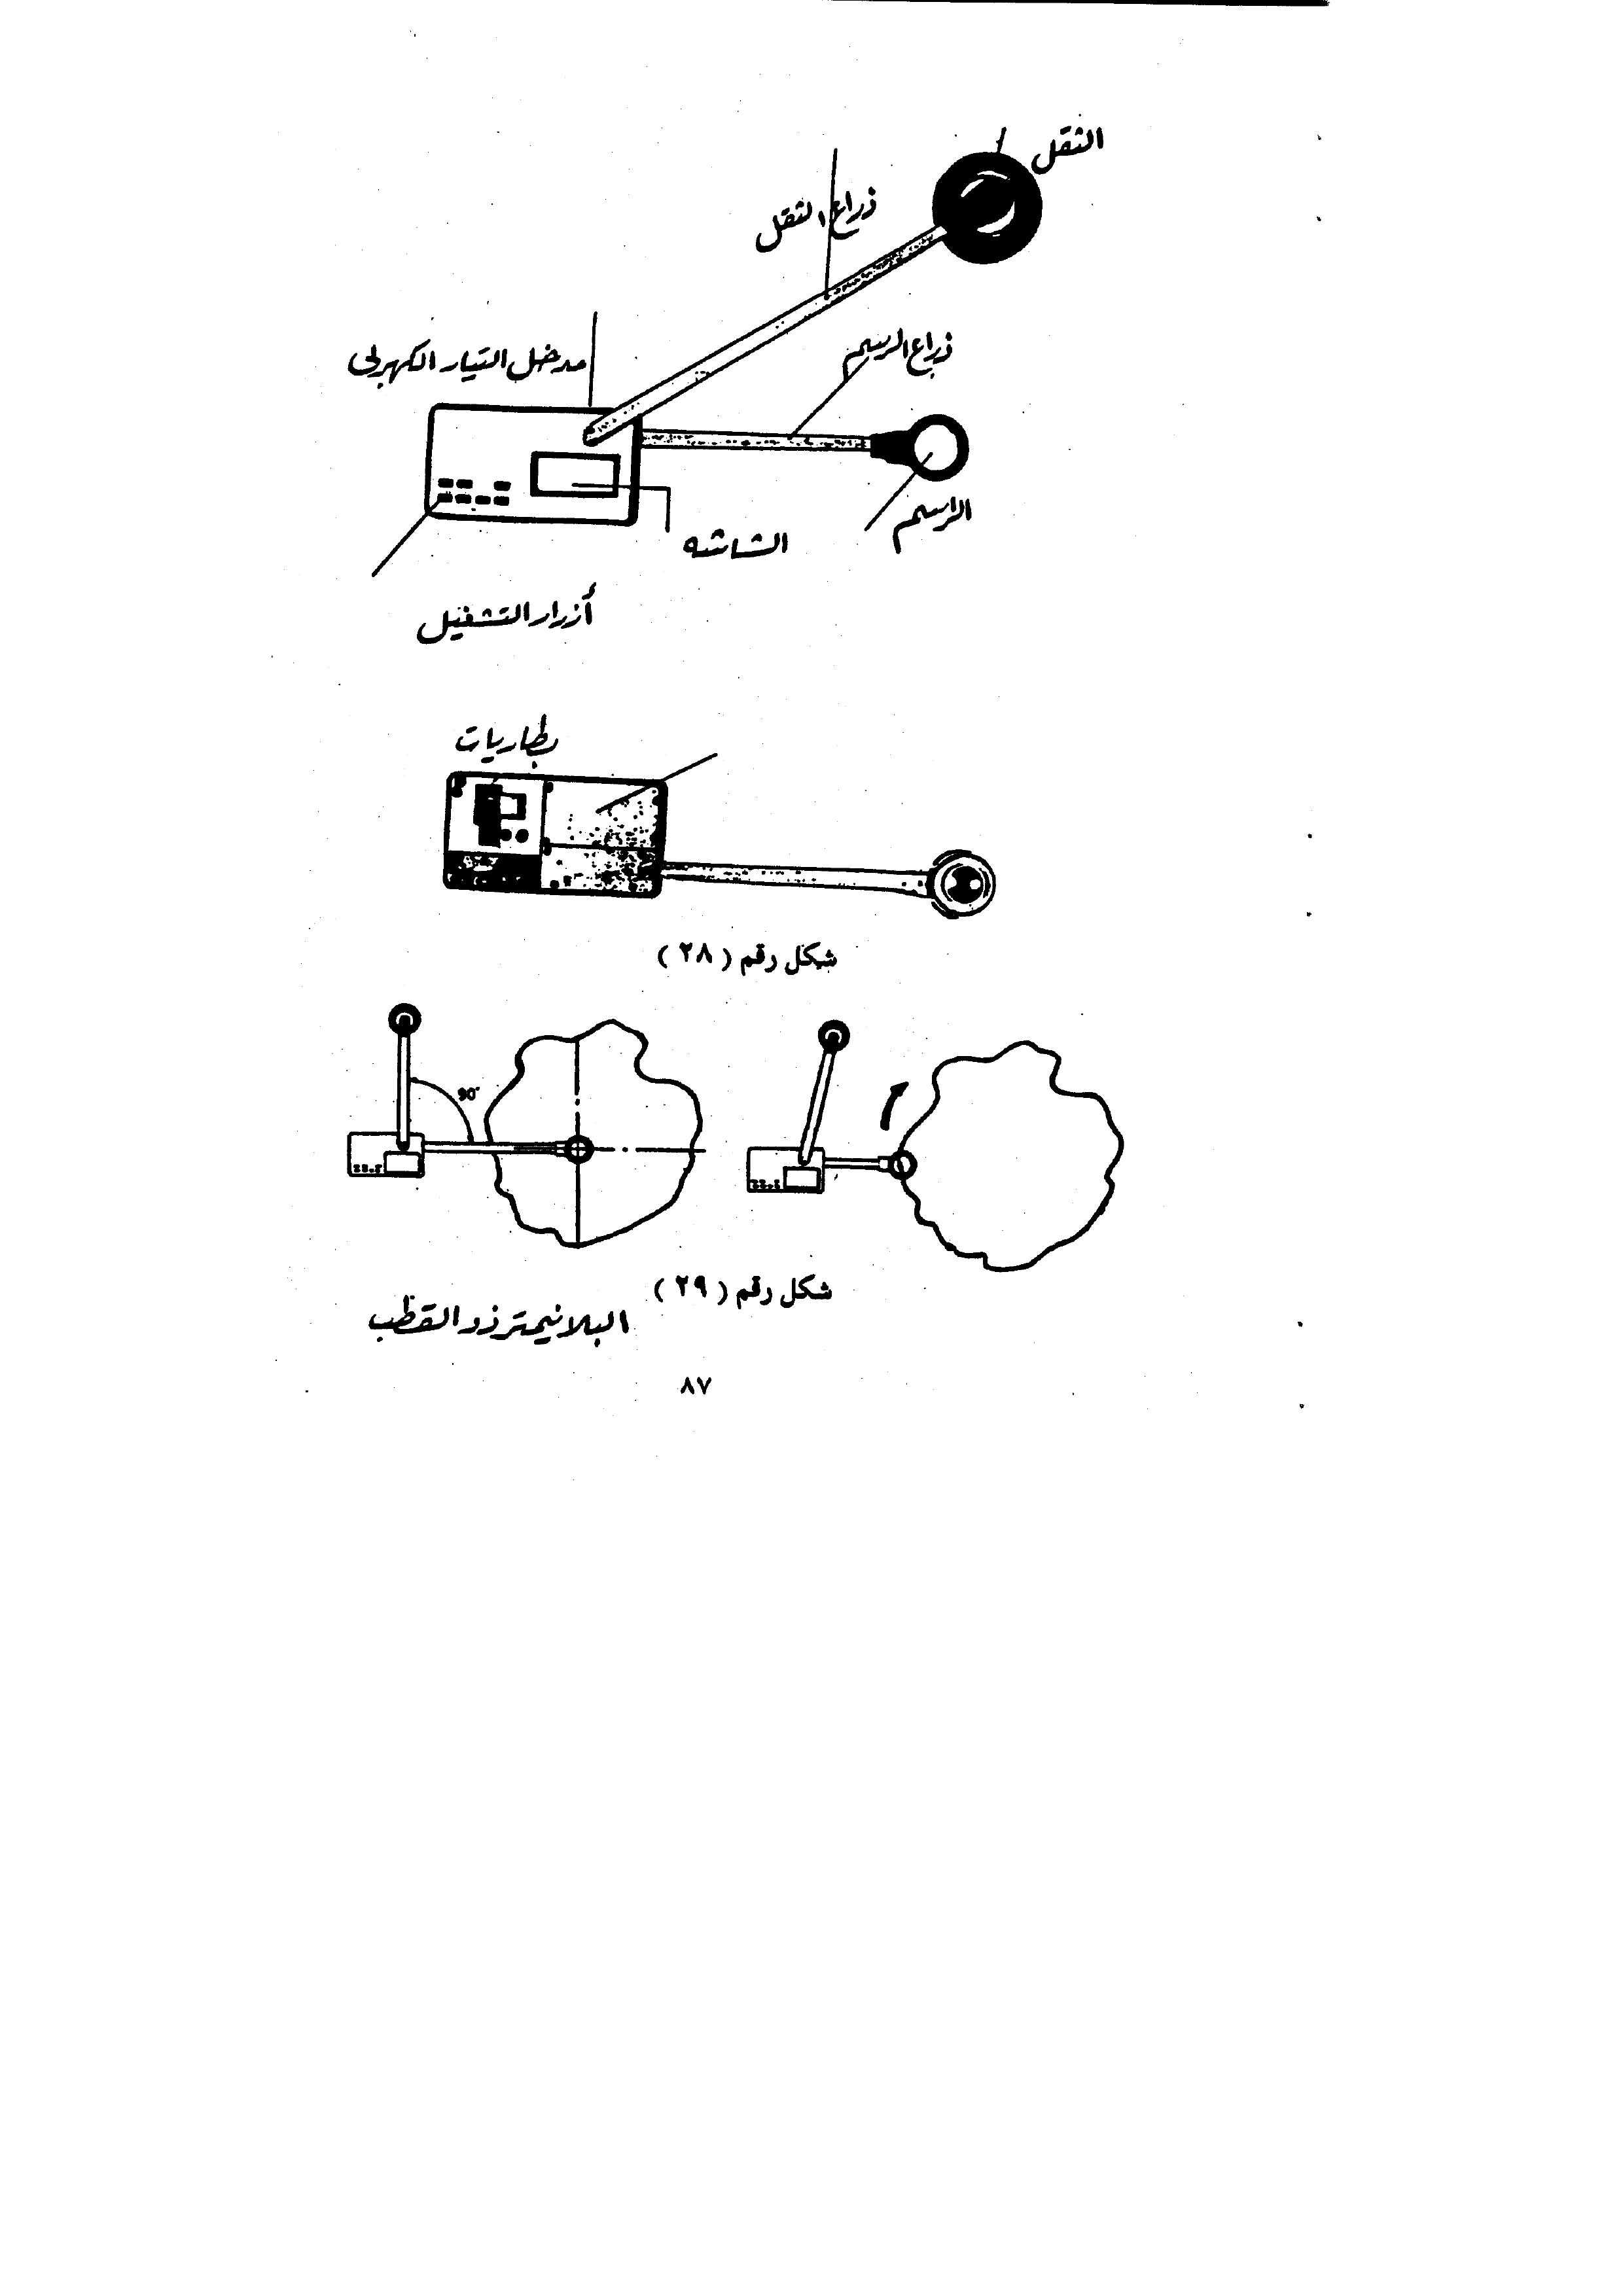 الثقل
ذراع الثقل
ذراع الرسم
مدخل التيار الكهربى
الراسم
الشاشه
أزرار التشغيل
بطاريات
شكل رقم ( ٢٨ )
90°
شكل رقم ( ٢٩ )
البلانيمتر ذو القطب
٨٧